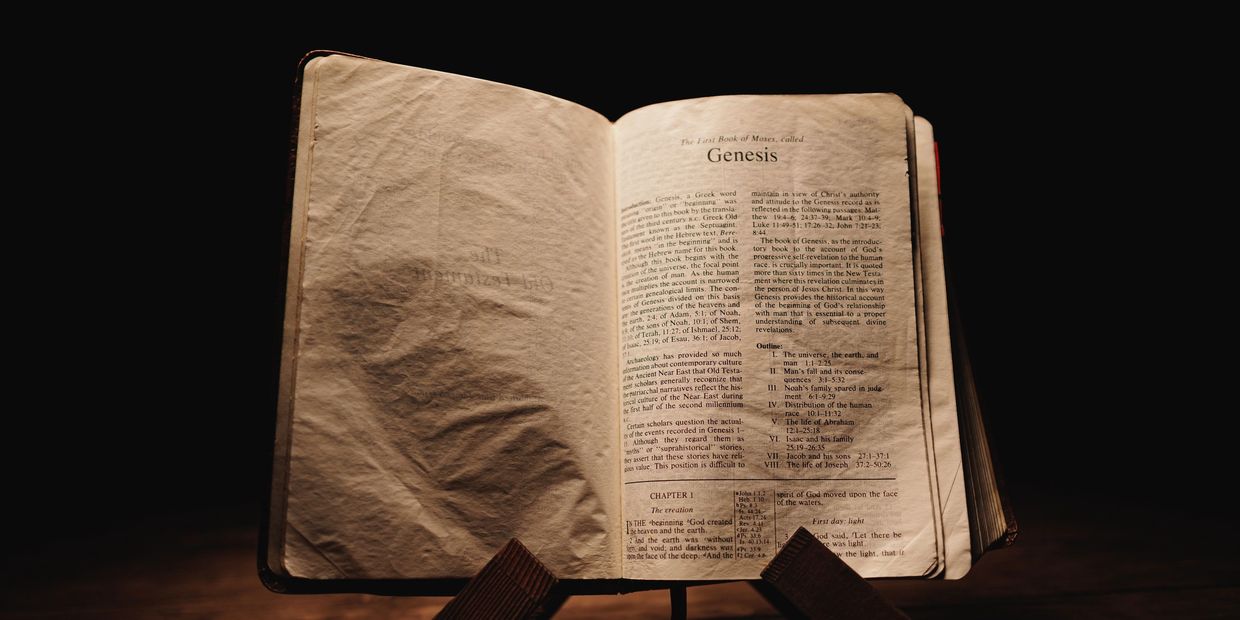 The
Old Testament
The First Book of Moses, called
Genesis
Introduction: Genesis, a Greek word
meaning "origin" or "beginning" was
title given to this book by the transla-
of the third century B.C. Greek Old
Testament known as the Septuagint.
first word in the Hebrew text, Bere-
means "in the beginning" and is
as the Hebrew name for this book.
Although this book begins with the
creation of the universe, the focal point
is the creation of man. As the human
race multiplies the account is narrowed
certain genealogical limits. The con-
of Genesis divided on this basis
are the generations of the heavens and
the earth, 2:4; of Adam, 5:1; of Noah,
of the sons of Noah, 10:1; of Shem,
of Terah, 11:27; of Ishmael, 25:12;
of Isaac, 25:19; of Esau, 36:1; of Jacob,
Archaeology has provided so much
information about contemporary culture
of the Ancient Near East that Old Testa-
ment scholars generally recognize that
the patriarchal narratives reflect the his-
torical culture of the Near East during
the first half of the second millennium
Certain scholars question the actual-
ity of the events recorded in Genesis 1–
Although they regard them as
"myths" or "suprahistorical" stories,
they assert that these stories have reli-
gious value. This position is difficult to
maintain in view of Christ's authority
and attitude to the Genesis record as is
reflected in the following passages: Mat-
thew 19:4–6; 24:37–39; Mark 10:4–9;
Luke 11:49–51; 17:26–32; John 7:21–23;
8:44.
The book of Genesis, as the introduc-
tory book to the account of God's
progressive self-revelation to the human
race, is crucially important. It is quoted
more than sixty times in the New Testa-
ment where this revelation culminates in
the person of Jesus Christ. In this way
Genesis provides the historical account
of the beginning of God's relationship
with man that is essential to a proper
understanding of subsequent divine
revelations.
Outline:
I. The universe, the earth, and
man 1:1–2:25
II. Man's fall and its conse-
quences 3:1–5:32
III. Noah's family spared in judg-
ment 6:1–9:29
IV. Distribution of the human
race 10:1–11:32
V. The life of Abraham
12:1–25:18
VI. Isaac and his family
25:19–26:35
VII. Jacob and his sons 27:1–37:1
VIII. The life of Joseph 37:2–50:26
CHAPTER 1
The creation
IN THE beginning God created
the heaven and the earth.
2 And the earth was without
form, and void; and darkness was
upon the face of the deep. And the
John 1.1,2
Heb. 1.10
Ps. 8.3
Is. 44.24
Acts 17.24
Rev. 4.11
Jer. 4.23
Ps. 33.6
Is. 40.13,14
Ps. 33.9
2 Cor. 4.6
spirit of God moved upon the face
of the waters.
First day: light
3 God said, Let there be
was light.
the light, that it